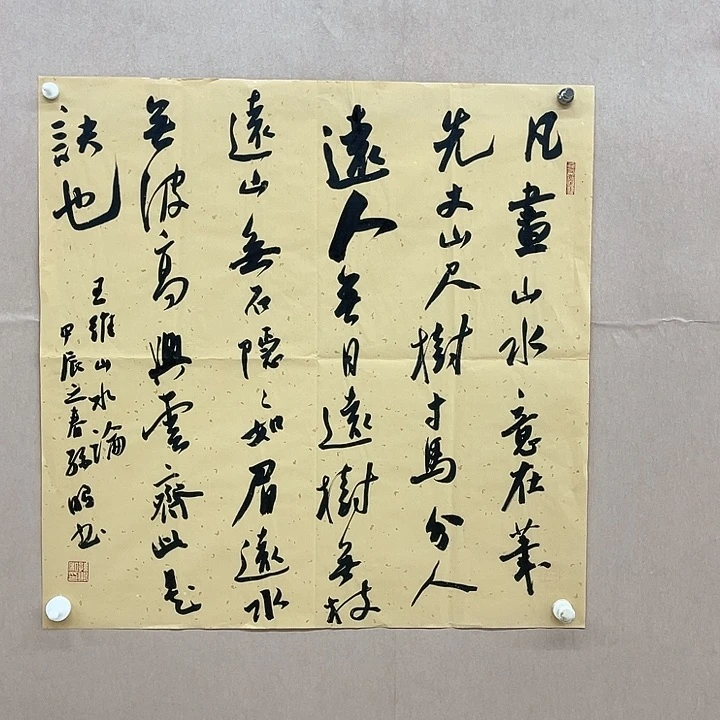 凡畫山水意在筆
先丈山尺樹寸馬分人
遠人無目遠樹無枝
遠山無石隱〻如眉遠水
無波高與雲齊此是
訣也
王維山水論
甲辰之春孫书